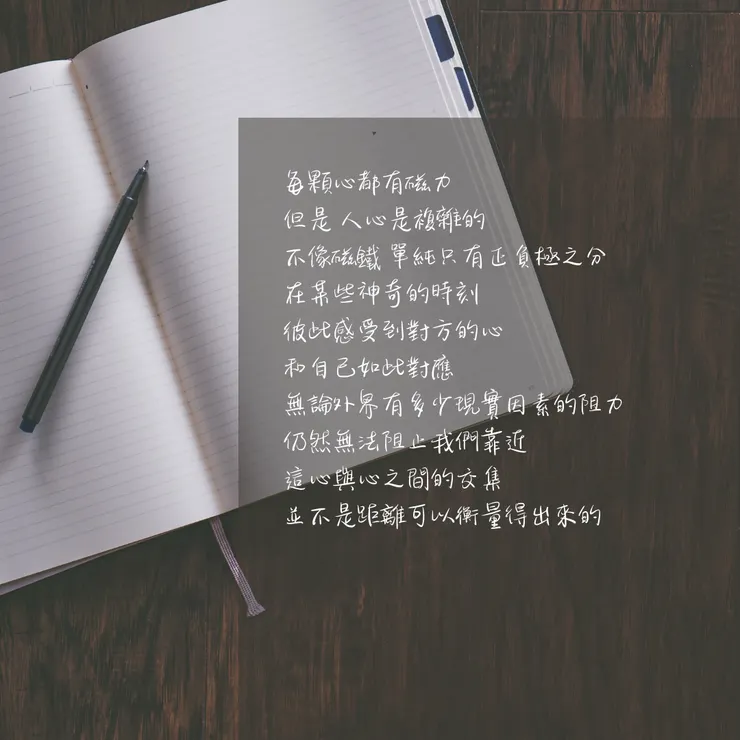 每顆心都有磁力
但是 人心是複雜的
不像磁鐵 單純只有正負極之分
在某些神奇的時刻
彼此感受到對方的心
和自己如此對應
無論外界有多少現實因素的阻力
仍然無法阻止我們靠近
這心與心之間的交集
並不是距離可以衡量得出來的